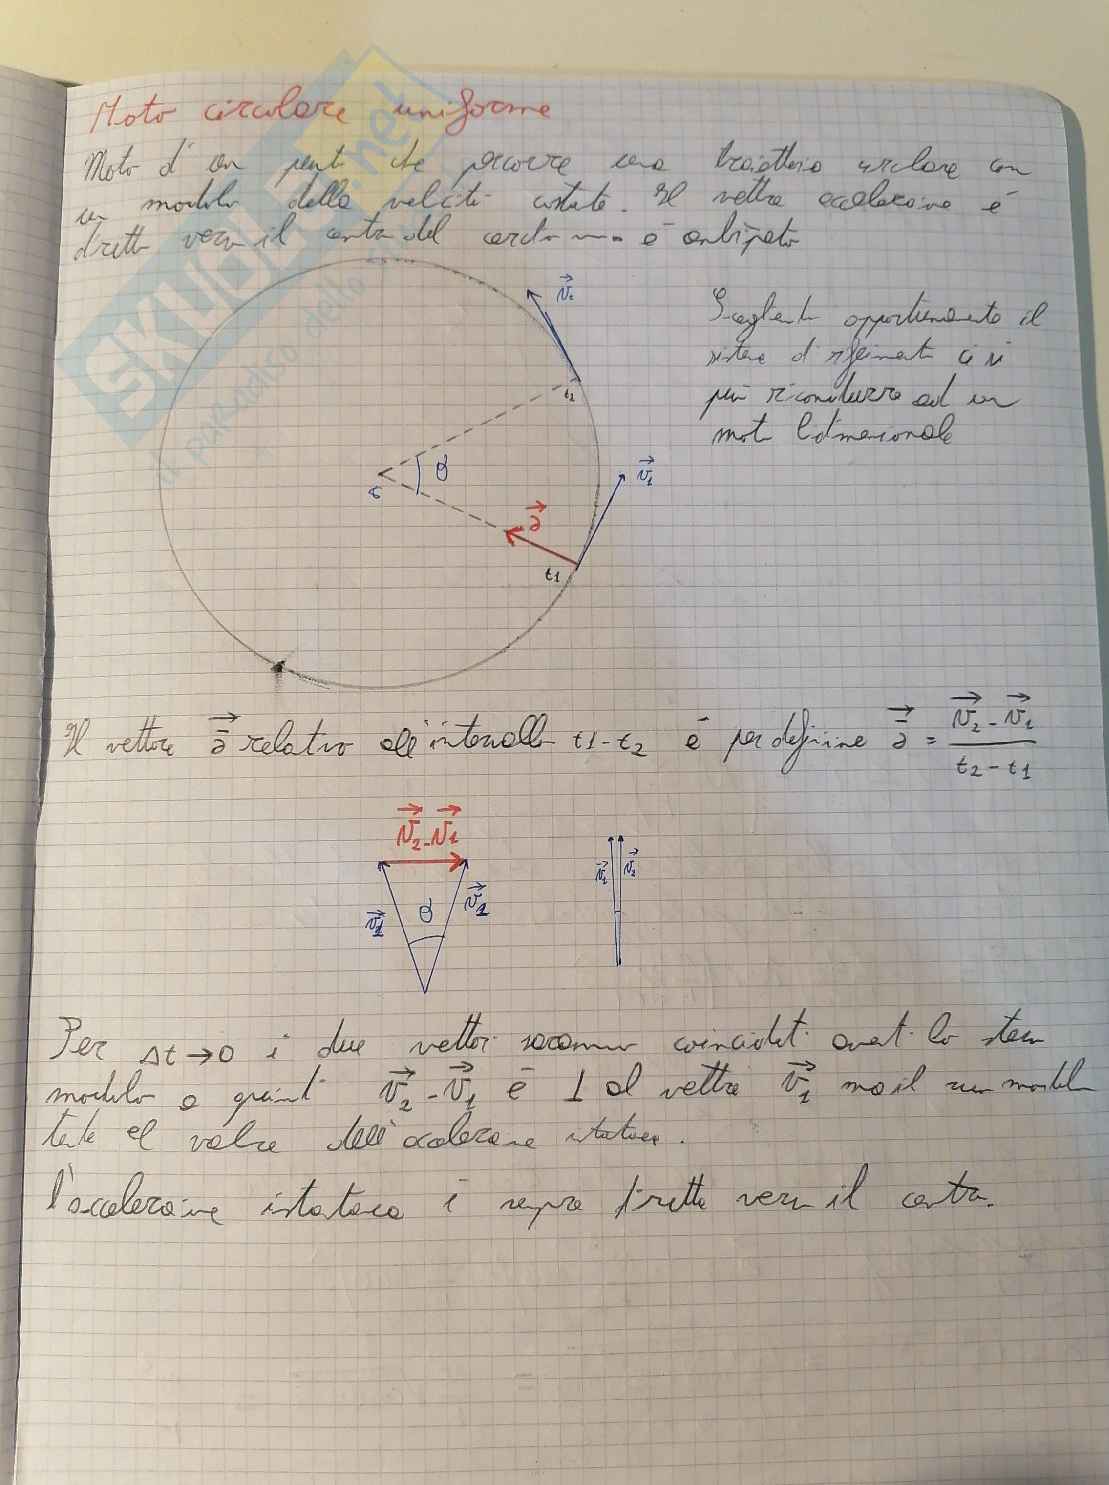 Moto circolare uniforme
Moto di un punto che percorre una traiettoria circolare con
un modulo della velocità costante. Il vettore accelerazione è
diretto verso il centro del cerchio è centripeto
SKUOLA.net
Scegliendo opportunamente il
sistema di riferimento ci si
può ricondurre ad un
moto bidimensionale
v₂
t₂
θ
v₁
a
t1
Il vettore a relativo all'intervallo t1-t2 è per definizione a = v₂ - v₁ / t₂ - t1
v₂ - v₁
θ
Per Δt→0 i due vettori saranno coincidenti avent lo stesso
modulo e quindi v₂ - v₁ è ⊥ al vettore v₁ ma il suo modulo
tende al valore dell'accelerazione istantanea.
l'accelerazione istantanea è sempre diretta verso il centro.